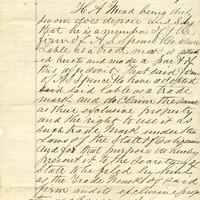 H. A. Mead being duly
sworn goes deposes and says
that he is a member of the
firm of A. S. Spence & Co. whose
Label as a trade mark is attach
ed hereto and made a part of
this affidavit that said firm
of A. S. Spence & Co. have adopted
said Label as a trade
mark and do claim the same
as their exclusive property
and the right to use it as
such trade Mark under the
Laws of the State of California
and for that purpose do hereby
present it to the Secretary of
State to be filed in his
as the trade Mark of said
firm and its exclusive prop